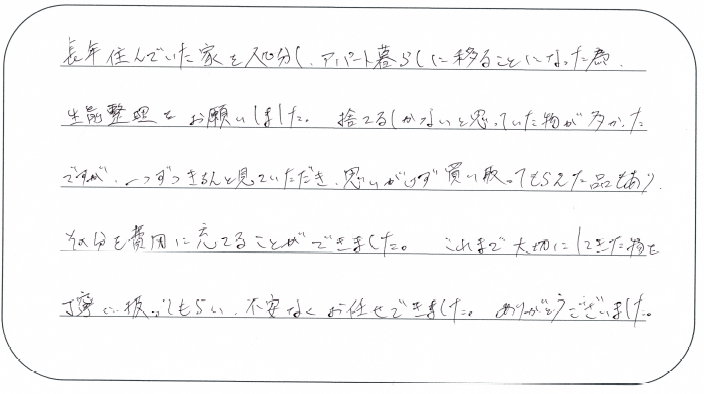 長年住んでいた家を処分し、アパート暮らしに移ることになった為、
生前整理をお願いしました。 捨てるしかないと思っていた物が多かった
ですが、一つずつきちんと見ていただき、思いがけず買い取ってもらえた品もあり、
その分を費用に充てることができました。 これまで大切にしてきた物を
丁寧に扱ってもらい、不安なくお任せできました。 ありがとうございました。